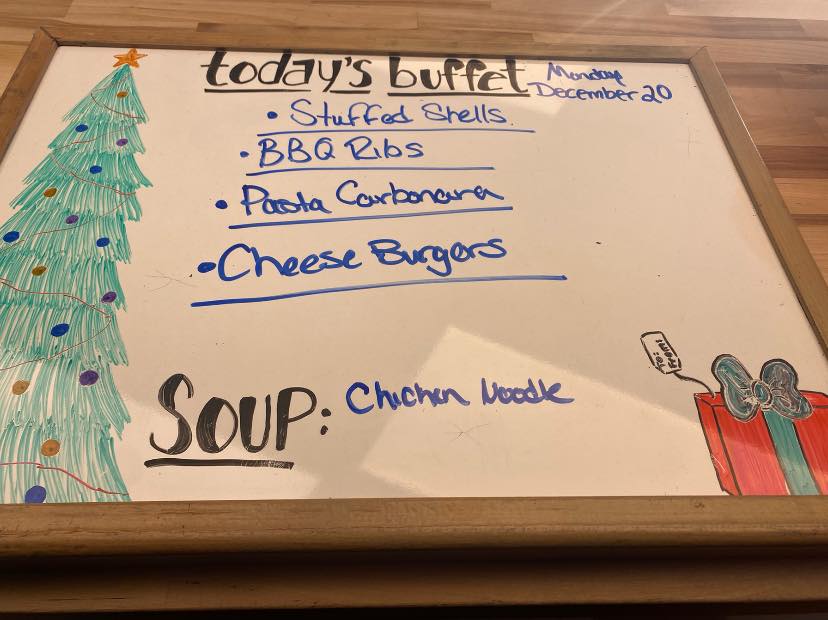 today's buffet
Monday
December 20
• Stuffed Shells
• BBQ Ribs
• Pasta Carbonara
• Cheese Burgers
SOUP: Chicken Noodle
To:
From: